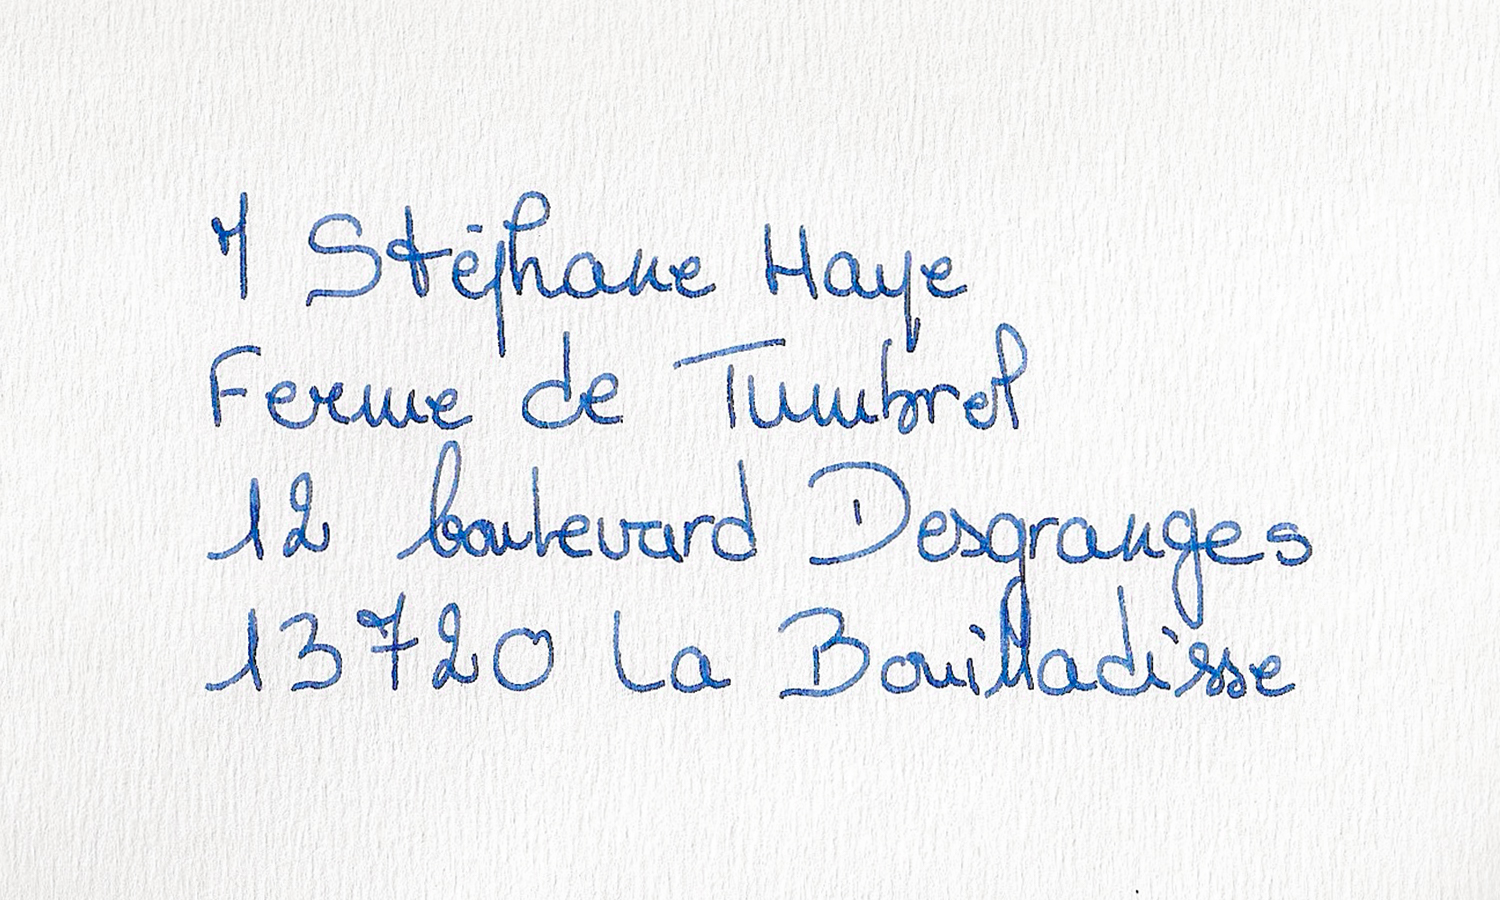 M Stéphane Haye
Ferme de Tumbrel
12 boulevard Desgranges
13720 La Bouilladisse